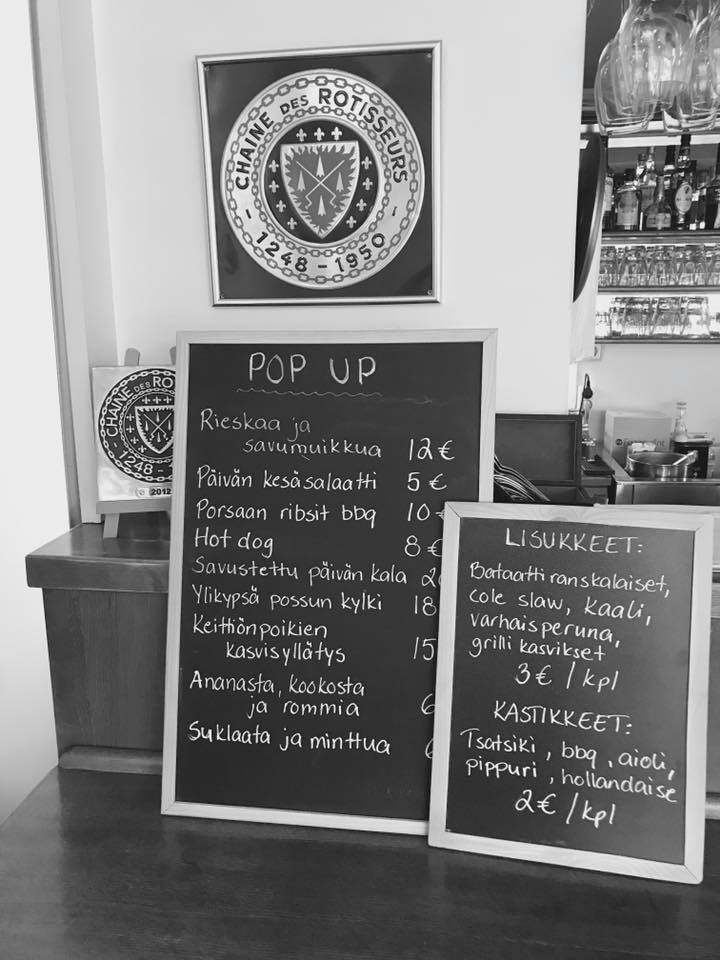 CHAINE DES ROTISSEURS
- 1248 - 1950 -
CHAINE DES RO
1248 -
2012
POP UP
Rieskaa ja
savumuikkua 12 €
Päivän kesäsalaatti 5 €
Porsaan ribsit bbq 10 €
Hot dog 8 €
Savustettu päivän kala 2
Ylikypsä possun kylki 18
Keittiönpoikien
kasvisyllätys 15
Ananasta, kookosta
ja rommia 6
Suklaata ja minttua 6
LISUKKEET:
Bataattiranskalaiset,
cole slaw, kaali,
varhaisperuna,
grilli kasvikset
3 € / kpl
KASTIKKEET:
Tsatsiki, bbq, aioli,
pippuri, hollandaise
2 € / kpl